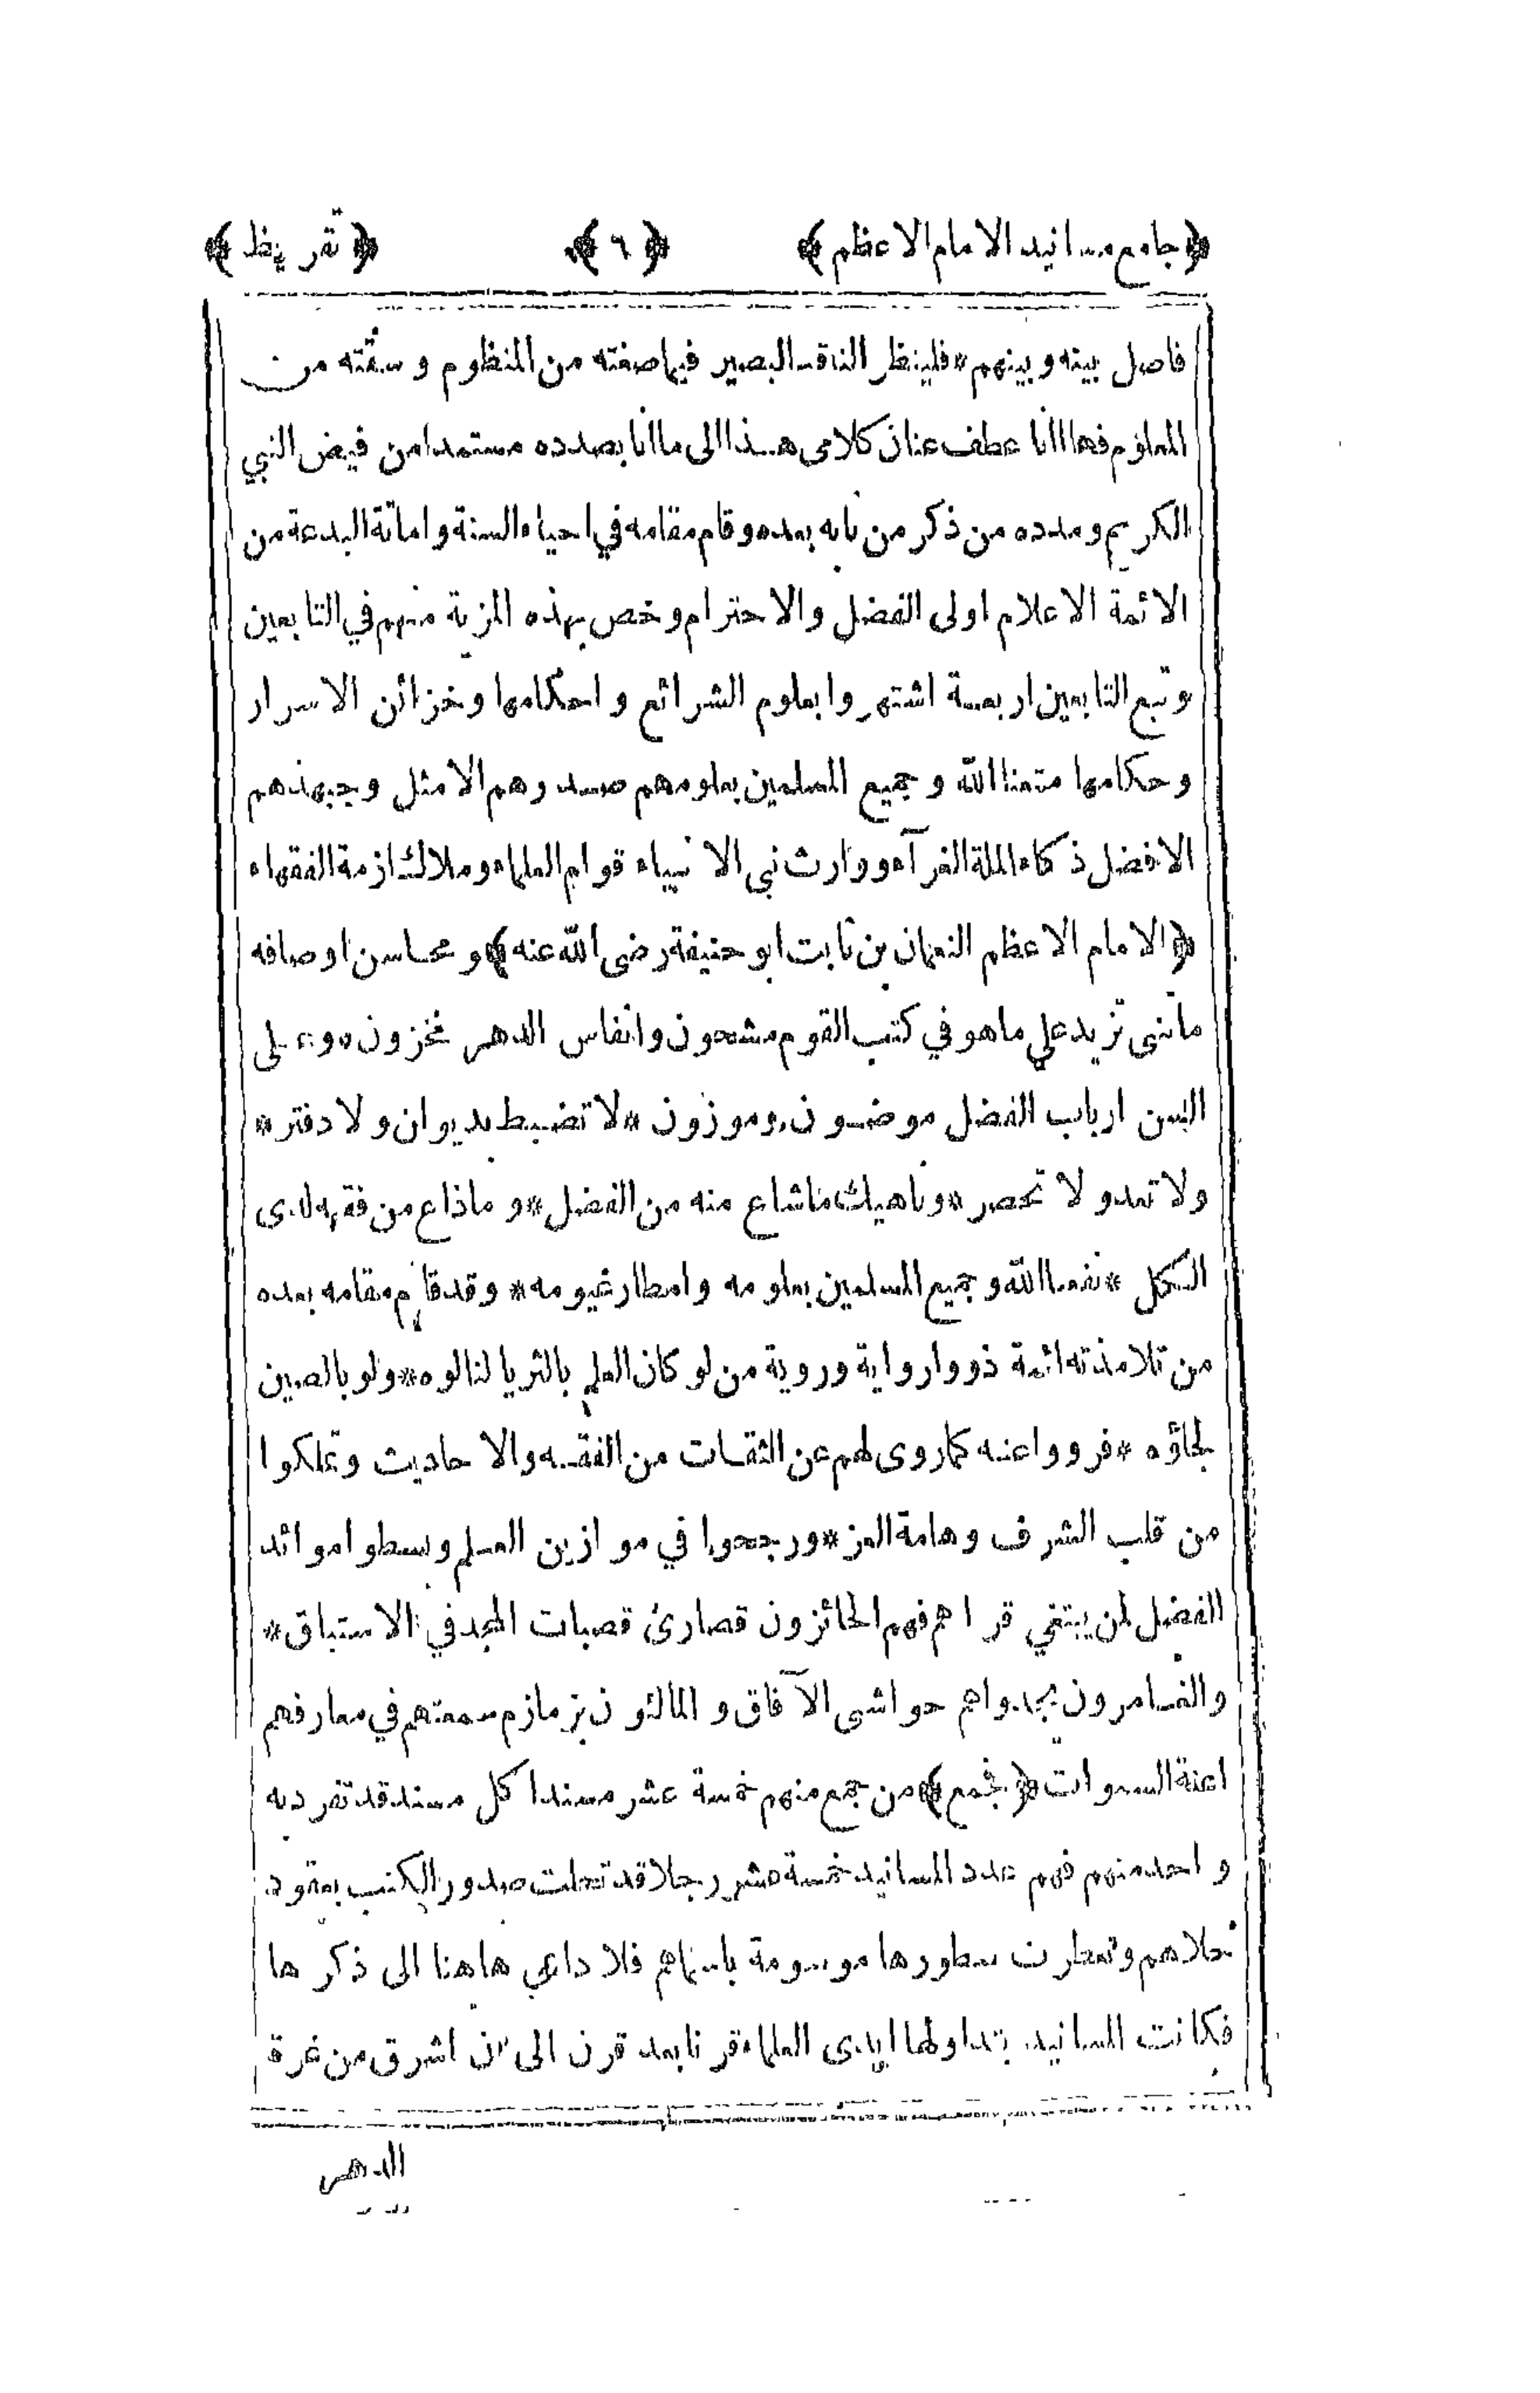 ﴿جامع مسانيد الامام الاعظم﴾ ﴿٦﴾ ﴿تقريظ﴾
فاصل بينه وبينهم * فلينظر الناقد البصير فيما صغته من المنظوم وسقته من
المعلوم فها انا عطف عنان كلامى هذا الى ما انا بصدده مستمدا من فيض النبي
الكريم ومدده من ذكر من نابه بعده وقام مقامه في احياء السنة واماتة البدعة من
الائمة الاعلام اولى الفضل والاحترام وخص بهذه المزية منهم في التابعين
وتبع التابعين اربعة اشتهروا بعلوم الشرائع واحكامها وخزائن الاسرار
وحكامها متعنا الله وجميع المسلمين بعلومهم صدرهم الامثل وجهبذهم
الافضل ذكاء الملة الغرآء ووارث نبي الانبياء قوام العلماء وملاك ازمة الفقهاء
﴿الامام الاعظم النعمان بن ثابت ابو حنيفة رضى الله عنه﴾ ومحاسن اوصافه
مأتنى تزيد على ما هو في كتب القوم مشحون وانفاس الدهر مخزون * وعلى
السن ارباب الفضل موضون وموزون * لا تضبط بديوان ولا دفتر *
ولا تعد ولا تحصر * وناهيك ما شاع منه من الفضل * وما ذاع من فقهه لدى
الكل * نفعنا الله وجميع المسلمين بعلومه وامطار غيومه * وقد قام مقامه بعده
من تلامذته ائمة ذووا رواية وروية من لو كان العلم بالثريا لنالوه * ولو بالصين
لجاؤه * فرووا عنه كما روى لهم عن الثقات من الفقه والاحاديث وتملكوا
من قلب الشرف وهامة العز * ورجحوا في موازين العلم وبسطوا موائد
الفضل لمن يبتغي قراهم فهم الحائزون قصارئ قصبات المجد في الاستباق *
والغامرون بجدواهم حواشى الآفاق والمالئون بزمازم سمعتهم في معارفهم
اعنة السموات ﴿فجمع﴾ من جمع منهم خمسة عشر مسندا كل مسند قد تفرد به
واحد منهم فهم عدد المسانيد خمسة عشر رجلا قد تحلت صدور الكتب بعقود
حلاهم وتعطرت سطورها موسومة باسماهم فلا داعي هاهنا الى ذكرها
فكانت المسانيد تداولها ايدى العلماء قرنا بعد قرن الى ان اشرق من غرة
الدهر